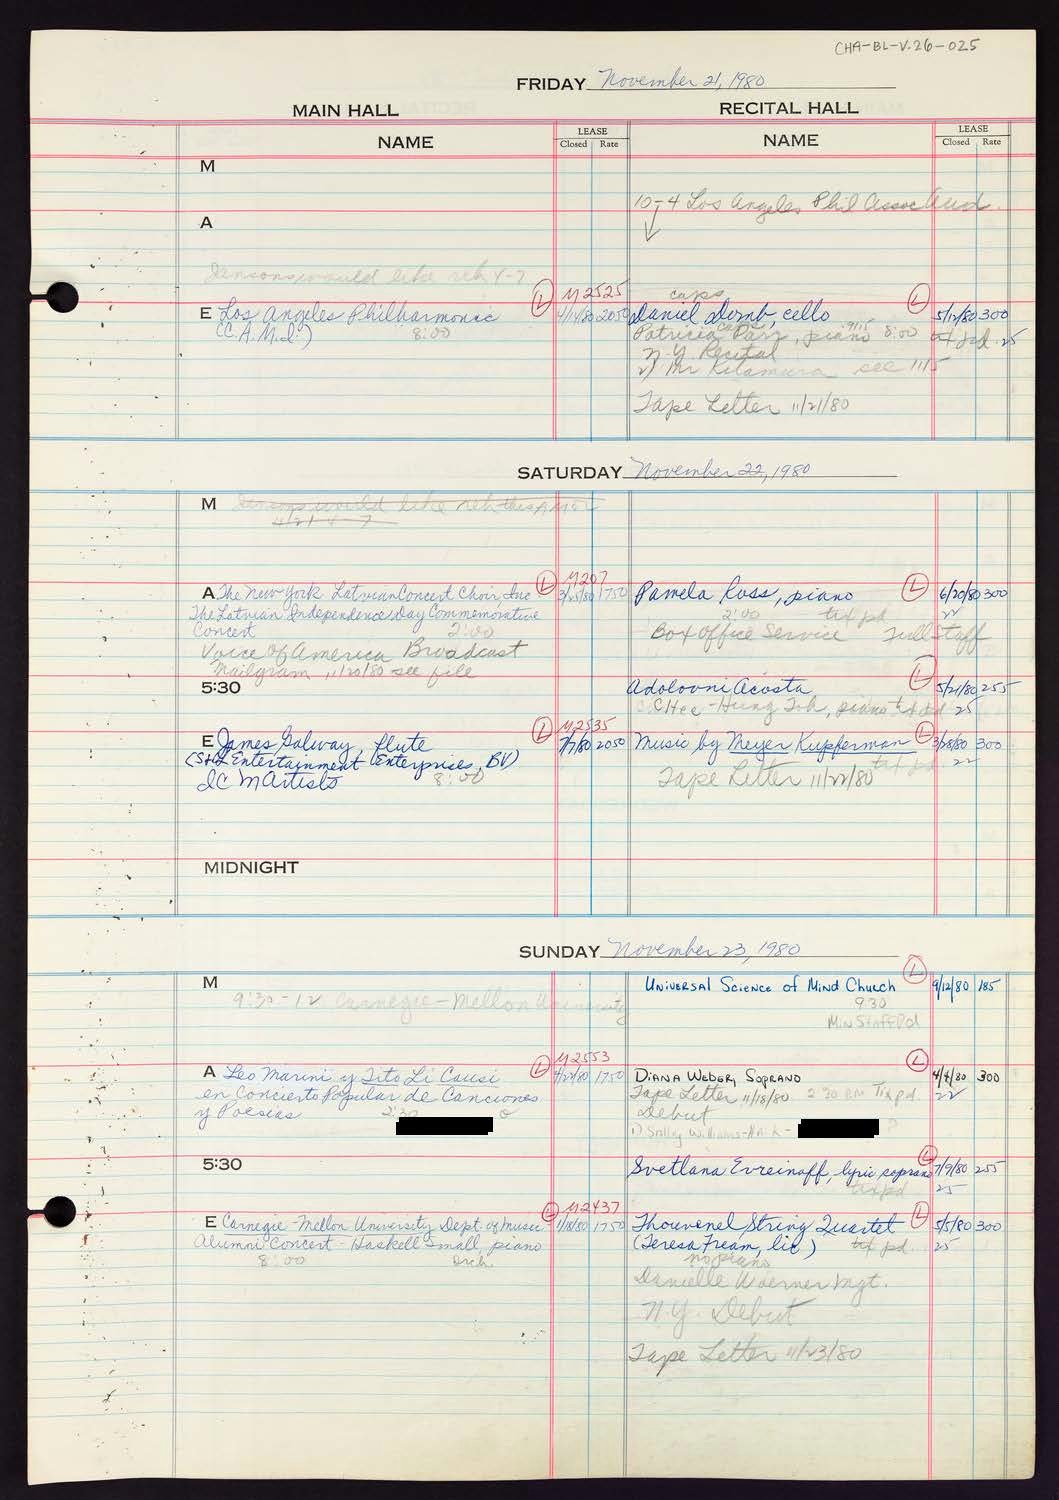 CHA-BL-V.26-025
FRIDAY November 21, 1980
MAIN HALL
RECITAL HALL
NAME
LEASE
Closed Rate
NAME
LEASE
Closed Rate
M
10-4 Los Angeles Phil Assoc Aud.
A
Jansons would like reh 4-7
E Los Angeles Philharmonic
(C.A.M.I.) 8:00
L
M2525
4/14/80 2050
caps
Daniel Domb, cello
L
5/12/80 300
Patricia Parr, piano 8:00 tix pd. 25
N.Y. Recital
Mr Kitamura see 11/5
Tape Letter 11/21/80
SATURDAY November 22, 1980
M Jansons would like reh this AM
A The New York Latvian Concert Choir, Inc
The Latvian Independence Day Commemorative
Concert 2:00
Voice Of America Broadcast
Mailgram, 11/20/80 see file
L
M207
3/25/80 1750
Pamela Ross, piano
L
6/20/80 300
2:00 tix pd 22
Box Office Service Full Staff
5:30
Adolovni Acosta
L
5/21/80 255
Chee-Hung Toh, piano tix pd 25
E James Galway, flute
(S&G Entertainment Enterprises, BV)
ICM Artists 8:00
L
M2535
7/7/80 2050
Music by Meyer Kupferman
L
3/28/80 300
tix pd. 22
Tape Letter 11/22/80
MIDNIGHT
SUNDAY November 23, 1980
M
9:30-12 Carnegie-Mellon University
UNIVERSAL SCIENCE OF MIND CHURCH
L
9/12/80 185
9:30
MIN STAFF Pd
A Leo Marini y Tito Li Causi
en Concierto Popular de Canciones
y Poesias 2:30
L
M2553
4/24/80 1750
DIANA WEBER, SOPRANO
L
4/4/80 300
Tape Letter 11/18/80 2 30 PM Tix pd. 22
Debut
5:30
Svetlana Evreinoff, lyric soprano
L
7/9/80 255
tix pd 25
E Carnegie-Mellon University Dept. of Music
Alumni Concert - Haskell Small, piano
8:00 Orch
L
M2437
1/18/80 1750
Thouvenel String Quartet
L
5/5/80 300
(Teresa Fream, lic) tix pd. 25
no piano
Danielle Woerner Mgt.
N.Y. Debut
Tape Letter 11/23/80